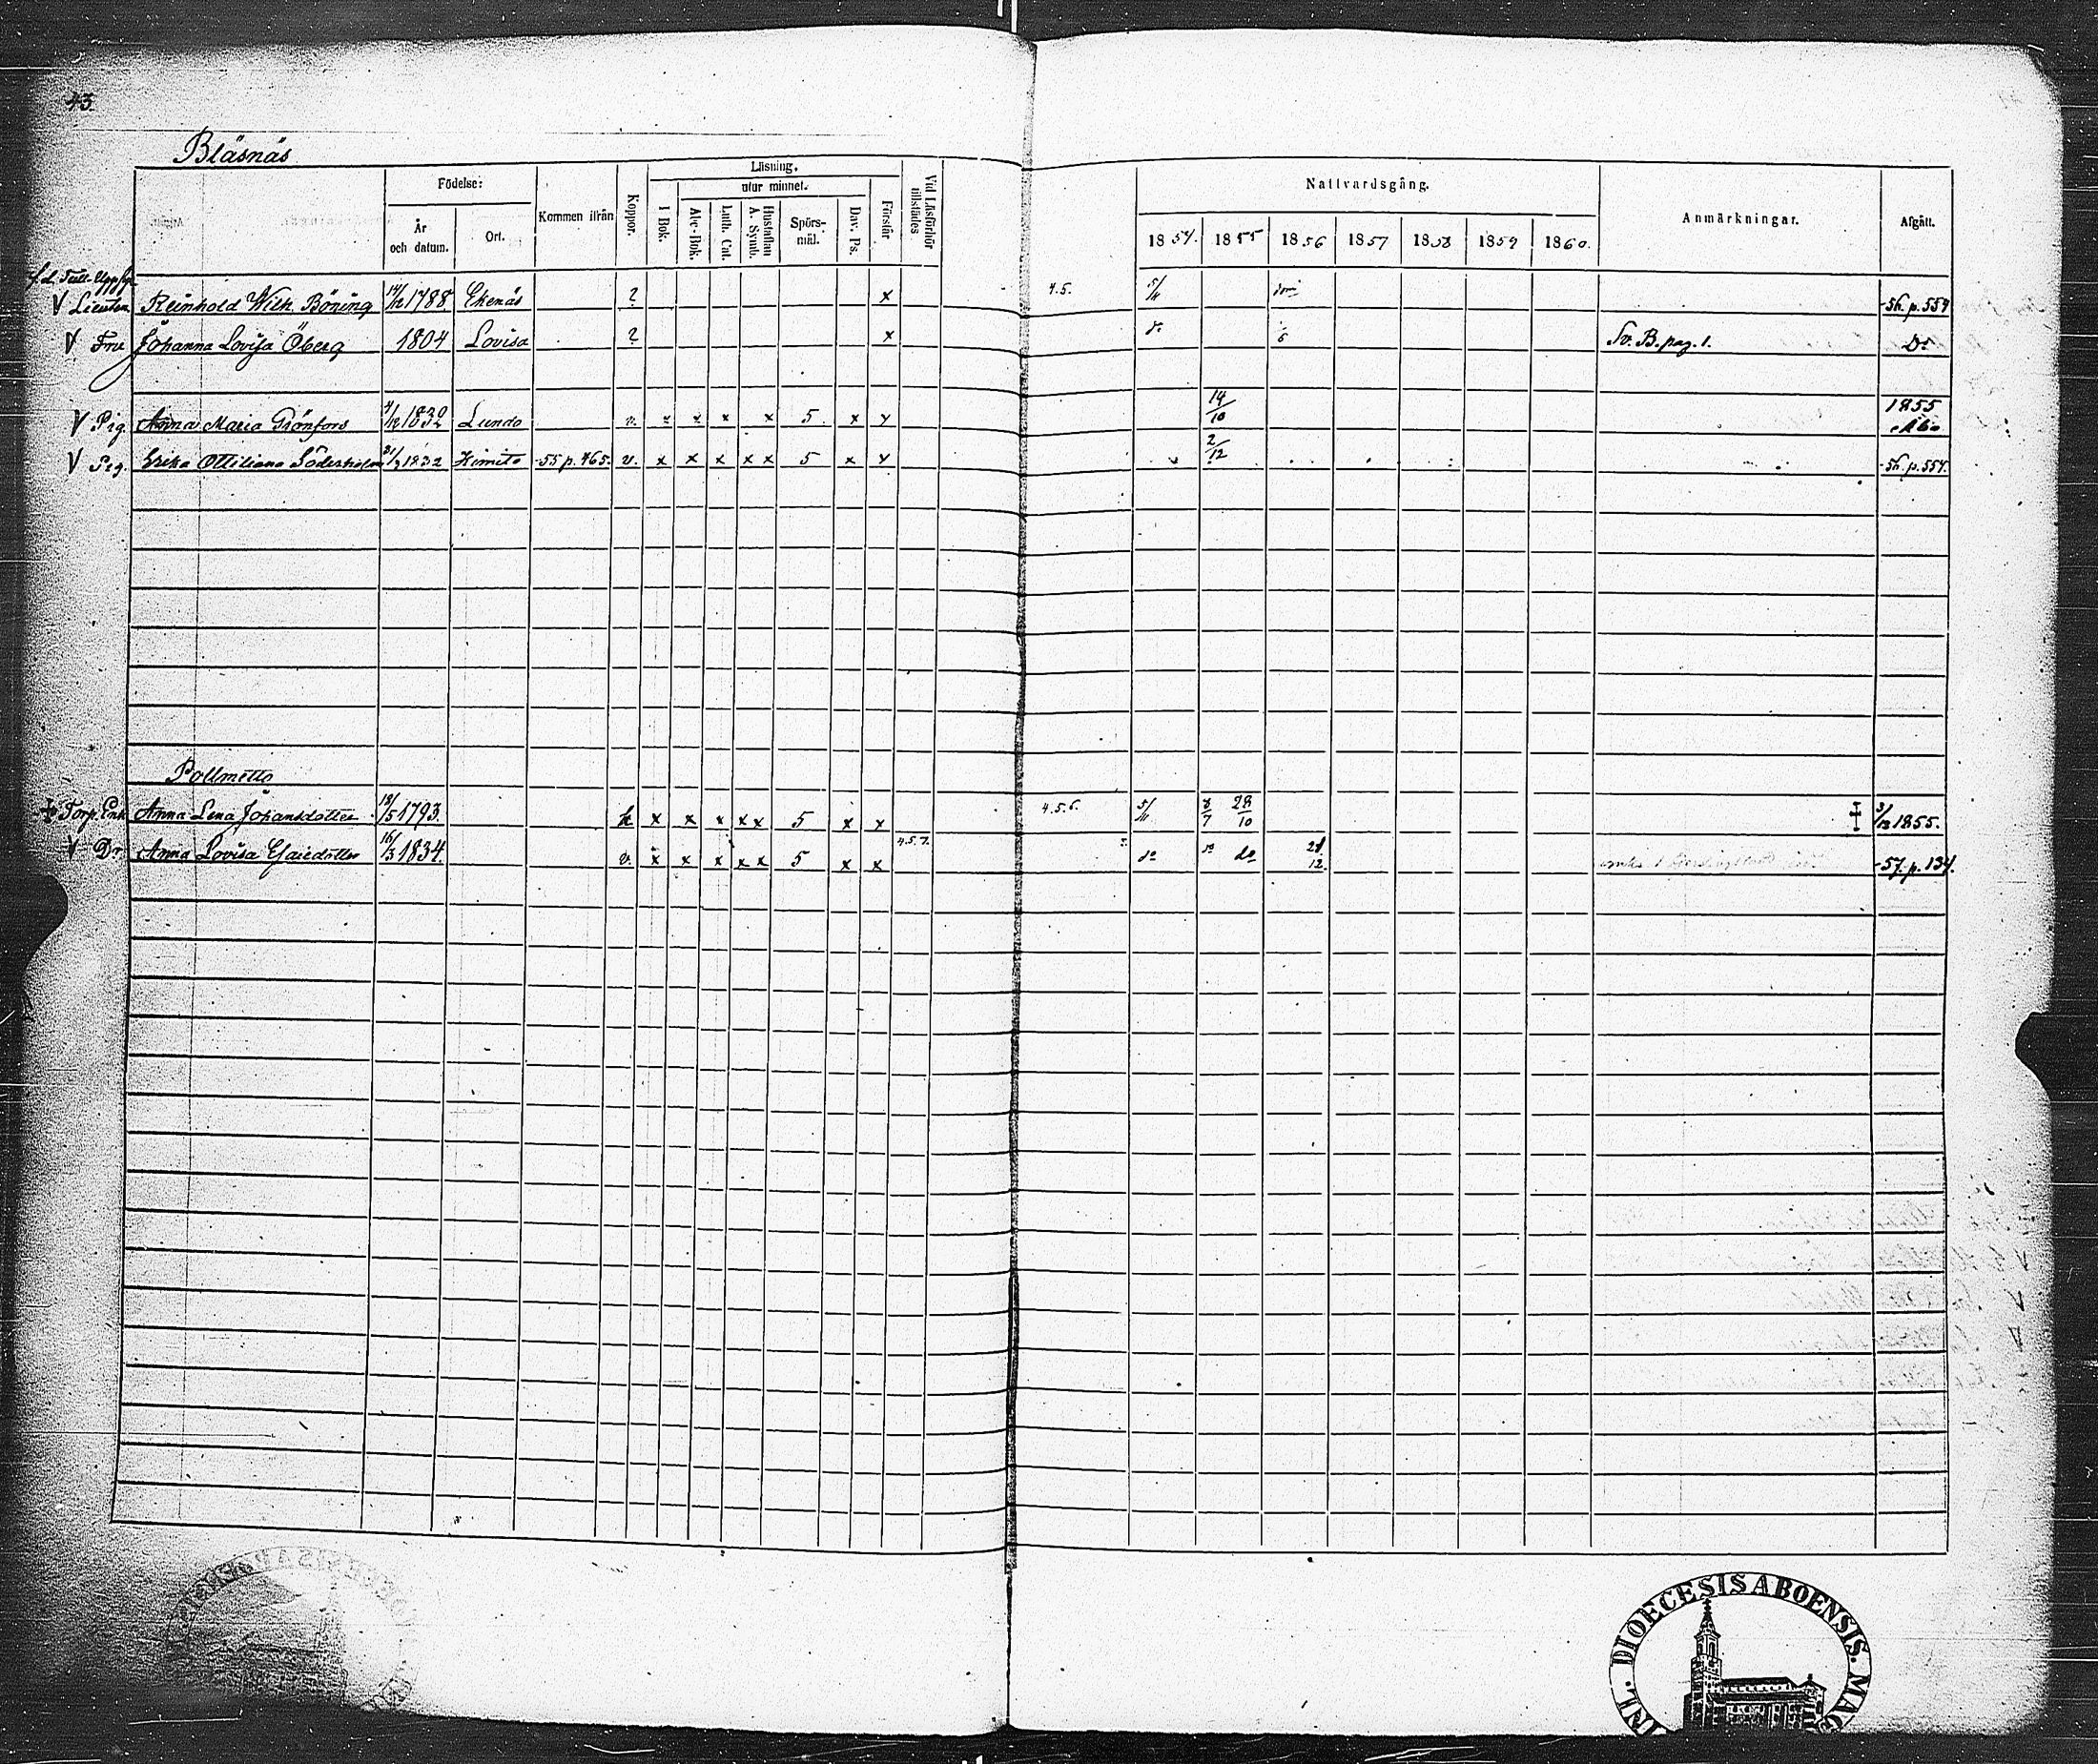 43.
Bläsnäs
Födelse:
År och datum.
Ort.
Kommen ifrån
Koppor.
Läsning.
I Bok.
utur minnet.
Abc-Bok.
Luth. Cat.
Hustaflan A. Symb.
Spörsmål.
Dav. Ps.
Förstår
Vid Läsförhör tillstädes
Nattvardsgång.
1854. 1855 1856 1857 1858 1859 1860.
Anmärkningar.
Afgått.
f.d. Tull-Uppsyn
V Lieutn. Reinhold Wilh. Böning 14/12 1788. Ekenäs ? x 4.5. 5/11 56. p. 554
V Fru Johanna Lovisa Öberg 1804 Lovisa ? x do 6 Sv. B. pag. 1. Do
V Pig. Anna Maria Grönfors 4/12 1832 Lundo v. x x x x 5 x x 14/10 1855 Åbo
V Pig. Erika Ottiliana Söderholm 21/3 1832 Kimito -55 p. 465. v. x x x x x 5 x x 2/12 -56. p. 554.
Pollmetto
Torp. Enk. Anna Lena Johansdotter 18/5 1793. x x x x x 5 x x 4.5.6. 5/11 8/7 28/10 3/12 1855.
V Dr Anna Lovisa Esaiedotter 16/3 1834. v. x x x x x 5 x x 4.5.7. do do do 21/12 -57. p. 134.
FINL. DIOECESIS ABOENSIS. MAG